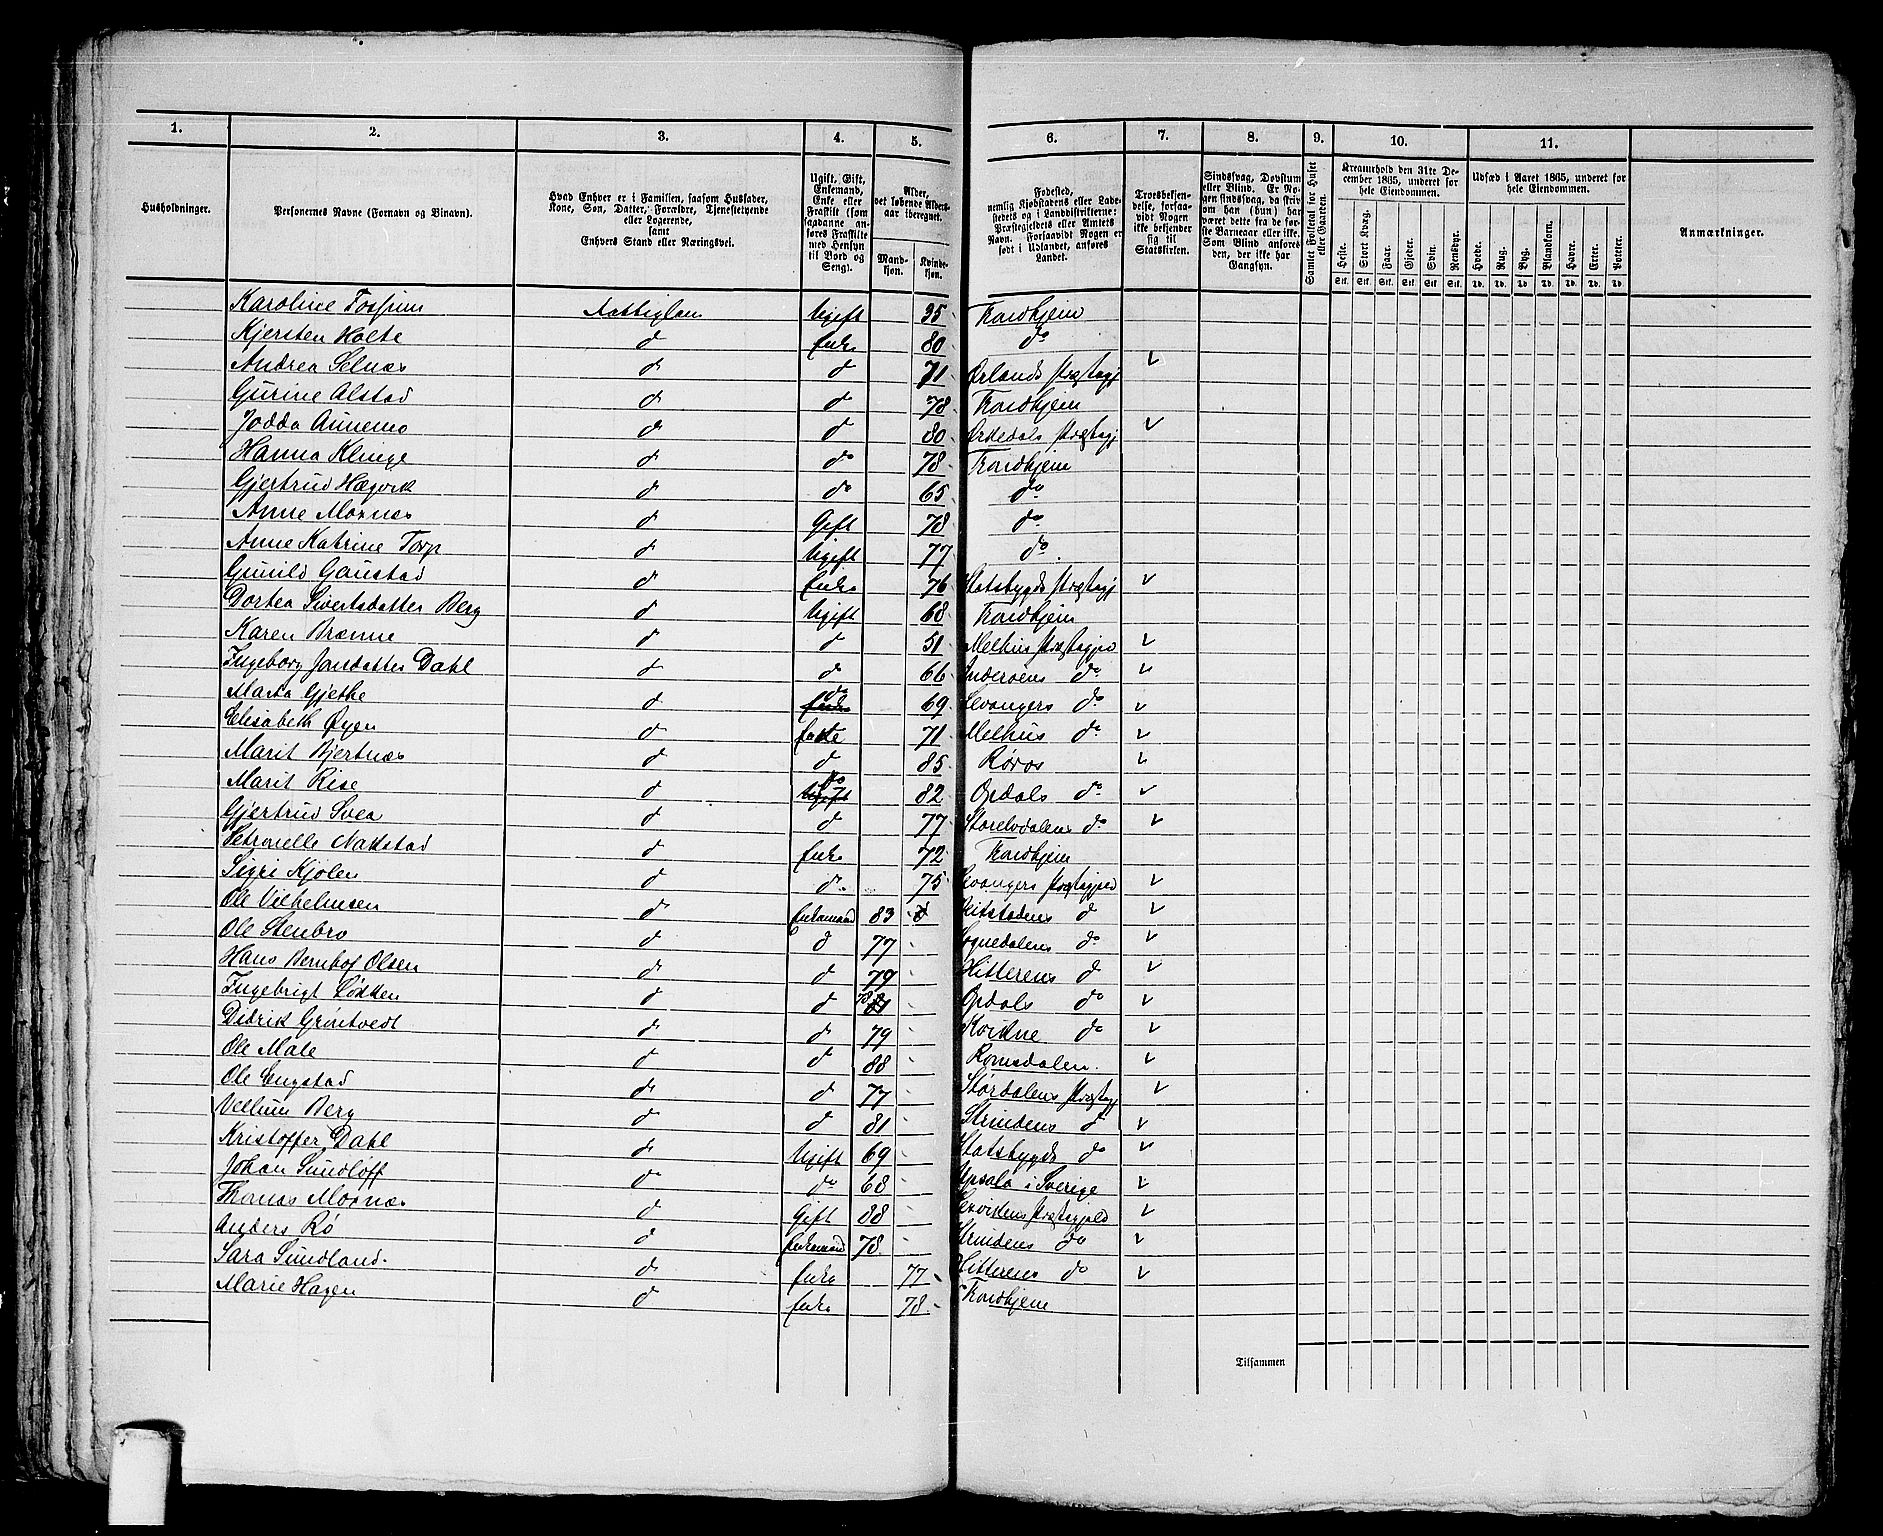 1. 2. 3. 4. 5. 6. 7. 8. 9. 10. 11.
Husholdninger.
Personernes Navne (Fornavn og Binavn).
Hvad Enhver er i Familien, saasom Husfader, Kone, Søn, Datter, Forældre, Tjenestetyende eller Logerende, samt Enhvers Stand eller Næringsvei.
Ugift, Gift, Enkemand, Enke eller Fraskilt (som saadanne anføres Fraskilte med Hensyn til Bord og Seng).
Alder, det løbende Aldersaar iberegnet.
Mandkjøn. Kvindekjøn.
Fødested, nemlig Kjøbstadens eller Ladestedets og i Landdistrikterne: Præstegjeldets eller Amtets Navn. Forsaavidt Nogen er født i Udlandet, anføres Landet.
Troesbekjendelse, forsaavidt Nogen ikke bekjender sig til Statskirken.
Sindssvag, Døvstum eller Blind. Er Nogen sindssvag, da skrives om han (hun) har været dette fra de første Barneaar eller ikke. Som Blind anføres den, der ikke har Gangsyn.
Samlet Folketal for Huset eller Gaarden.
Kreaturhold den 31te December 1865, underet for hele Eiendommen.
Heste. Stort Kvæg. Faar. Gjeder. Svin. Rensdyr.
Stk. Stk. Stk. Stk. Stk. Stk.
Udsæd i Aaret 1865, underet for hele Eiendommen.
Hvede. Rug. Byg. Blandkorn. Havre. Erter. Poteter.
Td. Td. Td. Td. Td. Td. Td.
Anmærkninger.
Karoline Fossum Fattiglem Ugift 35 Trondhjem
Kjersten Holte d Enke 80 do
Andrea Selnæs d d 71 Ørlands Præstegj v
Gurine Alstad d d 78 Trondhjem
Jodda Aunemo d d 80 Orkedals Præstegj v
Hanna Klinge d do 78 Trondhjem
Gjertrud Hægvik d do 65 do
Anne Moxnæs d Gift 78 do
Anne Katrine Torp d Ugift 77 do
Gunild Gaustad d Enke 76 Statsbygds Præstegj v
Dortea Sivertsdatter Berg d Ugift 68 Trondhjem
Karen Brænne d d 51 Melhus Præstegjed v
Ingeborg Jonsdatter Dahl d d 66 Inderøens do v
Marta Gjethe d do 69 Levangers do v
Elisabeth Øyen d Enke 71 Melhus do v
Marit Bjertnæs d d 85 Røros v
Marit Rise d do 82 Opdals do v
Gjertrud Svea d d 77 Storelvdalens do v
Petronelle Natstad d Enke 72 Trondhjem
Sigri Kjølen d do 75 Levangers Præstegjeld v
Ole Vilhelmsen d Enkemand 83 Beitstadens d v
Ole Stenbro d d 77 Soknedalens do v
Hans Bernhof Olsen d d 79 Hitterens d v
Ingebrigt Løkken d d 78 Opdals do v
Didrik Grøntvedt d d 79 Kvikne do v
Ole Male d d 88 Romsdalen v
Ole Engstad d d 77 Størdalens Præstegj v
Vellum Berg d d 81 Strindens d v
Kristoffer Dahl d Ugift 69 Statsbygds do v
Johan Sundløff do do 68 Upsala i Sverige v
Thomas Moxnæs d Gift 88 Præstegjeld v
Anders Rø d Enkemand 78 Strindens do v
Sara Sundland d Enke 77 Hitterens do v
Marie Hagen d Enke 78 Trondhjem
Tilsammen